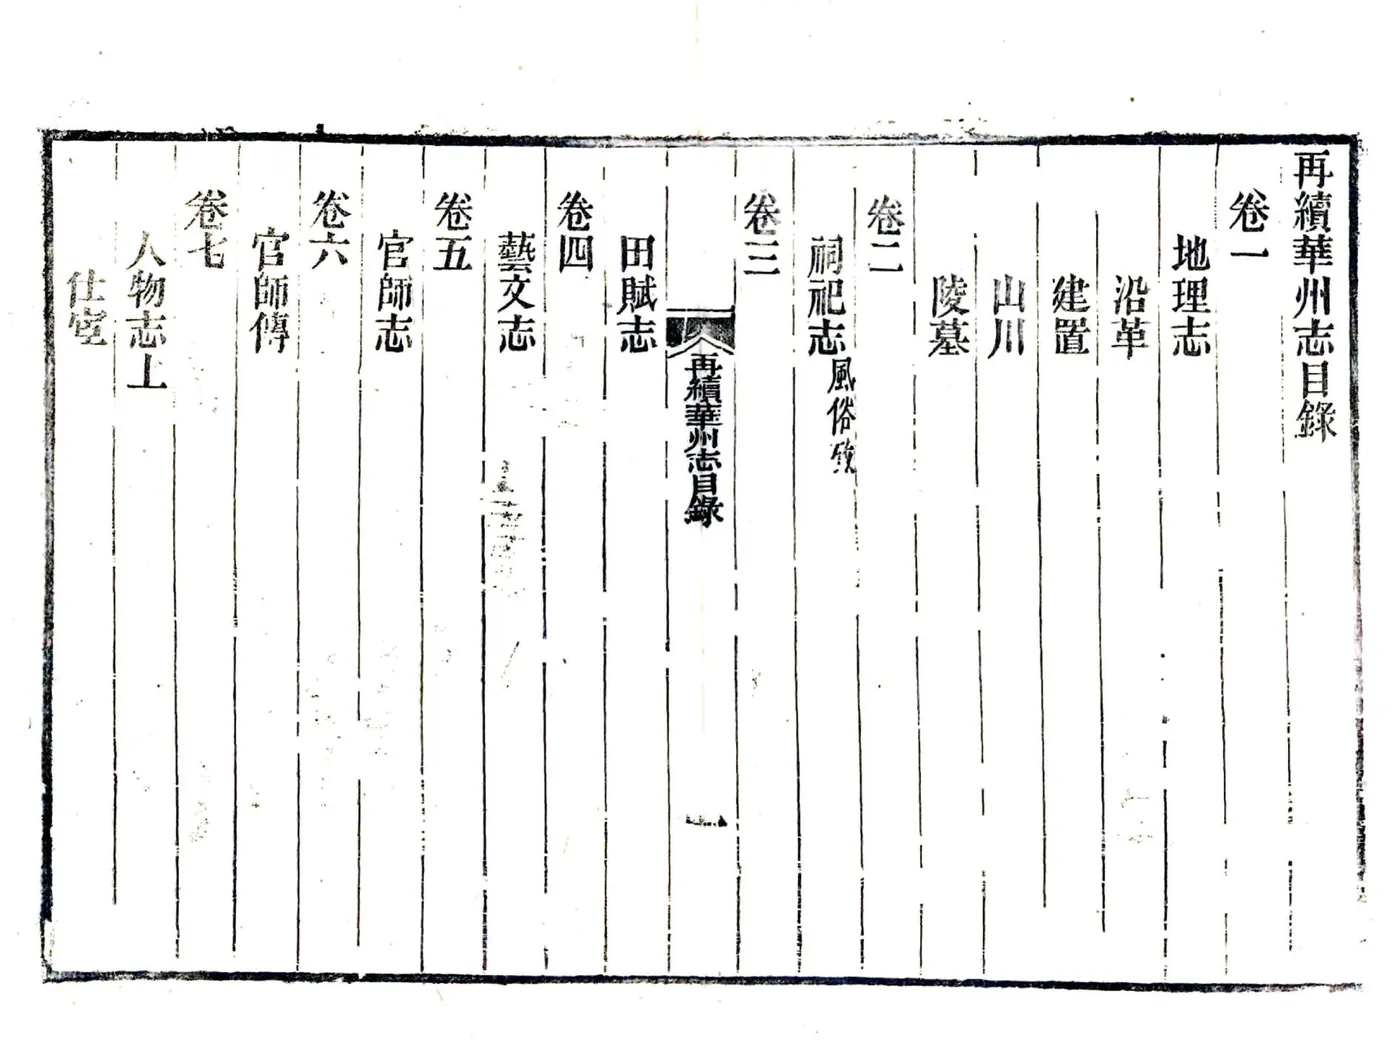 再續華州志目錄
卷一
地理志
沿革
建置
山川
陵墓
卷二
祠祀志風俗攷
卷三
再續華州志目錄
田賦志
卷四
藝文志
卷五
官師志
卷六
官師傳
卷七
人物志上
仕宦